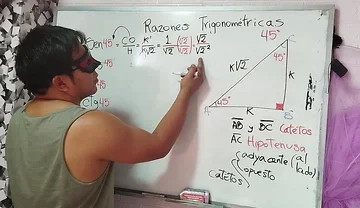 Razones Trigonométricas
Sen 45 = CO/H = K/K√2 = 1/√2 (√2/√2) = √2/√2²
45
45
Ctg 45
45°
45°
K√2
K
A 45° K B
AB y BC Catetos
AC Hipotenusa
Catetos { adyacente (al lado)
opuesto